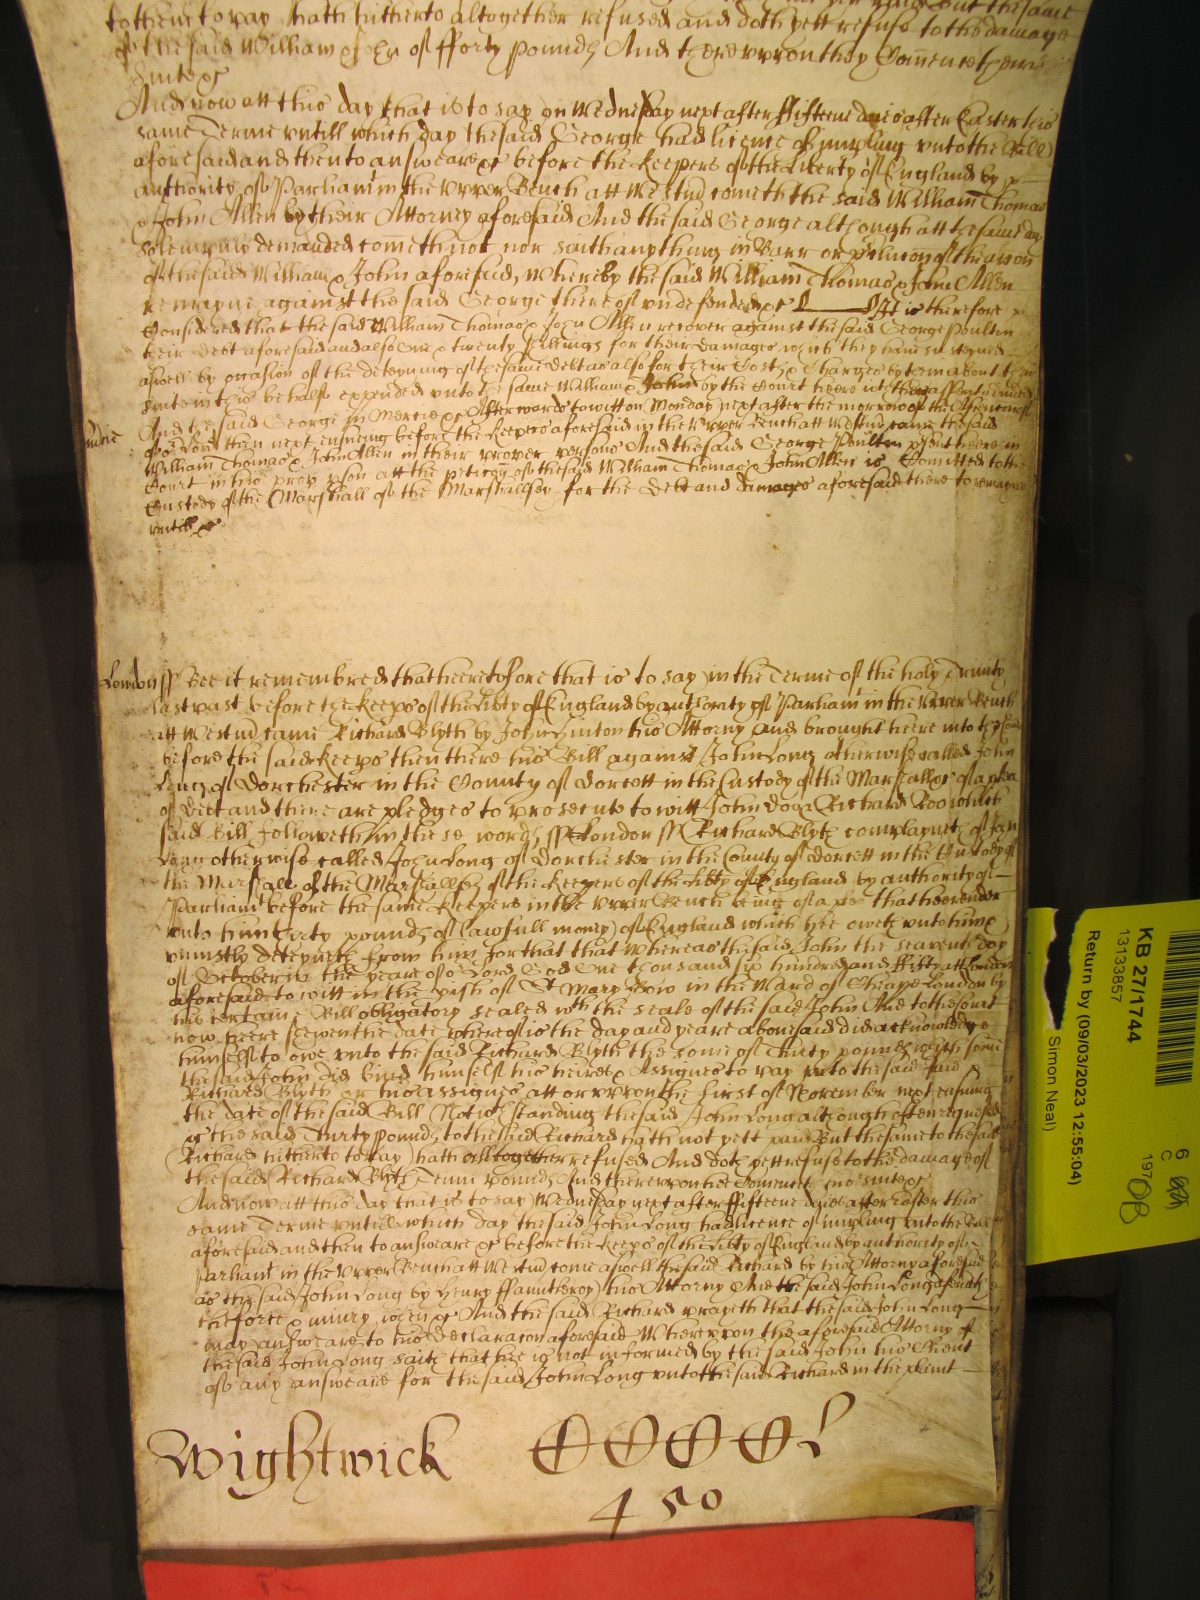 the same
to them to pay hath hitherto altogether refused and doth yett refuse to the damage
of the said William & John of fforty pounds And thereupon they Comence their
suite &c
And now att this day that is to say on Wednesday next after ffifteene daies after Easter this
same Terme untill which day the said George had licence of imparling unto the Bill
aforesaid and then to answeare &c before the Keepers of the Liberty of England by
authority of Parliamt in the Upper Bench att Westmr cometh the said William Thomas
& John Allen by their Attorney aforesaid And the said George although att the same day
solempnly demanded cometh not nor saith anything in Barr or p'clusion of the accon
of the said William & John aforesaid, Whereby the said William Thomas & John Allen
remayne against the said George thereof undefended &c It is therefore
Considered that the said William Thomas & John Allen recover against the said George Poulten
their Debt aforesaid and also one & twenty shillings for their damages which they have susteyned
aswell by occasion of the deteyning of the same debt as also for their Costs & Charges by them about their
suite in this behalfe expended unto the same William & John by the Court heere with their assent adiudged
And the said George in Mercie &c Afterwards to witt on Monday next after the morrow of the Ascencon of
or Lord then next ensueing before the Keepers aforesaid in the Upper Bench att Westmr came the said
William Thomas & John Allen in their proper persons And the said George Poulten p'sent heere in
Court in his prop p'son att the peticon of the said William Thomas & John Allen is Comitted to the
Custody of the Marshall of the Marshallsey for the Debt and damages aforesaid there to remayne
untill &c
London ss Bee it remembred that heeretofore that is to say in the Terme of the holy Trinity
last past before the Keeps of the Libty of England by authority of Parliam in the Upper Bench
att Westmr came Richard Blyth by John Hinton his Attorny and brought heere into the Court
before the said Keeps then there his Bill against John Long otherwise called John
Long of Dorchester in the County of Dorsett in the Custody of the Marshall &c of a plea
of Debt and there are pledges to prosecute to witt John Doo & Richard Roo which
said Bill followeth in these words ss London ss Richard Blyth complayneth of John
Long otherwise called John Long of Dorchester in the County of Dorsett in the Custody of
the Marshall of the Marshallsey of the Keepers of the Libty of England by authority of
Parliamt before the same Keepers in the Upper Bench being of a plea that hee render
unto him thirty pounds of lawfull money of England which hee oweth unto him &
uniustly deteyneth from him for that that Whereas the said John the seaventh day
of October in the yeare of or Lord God One thousand six hundred and ffifty att London
aforesaid to witt in the pish of St Mary Bow in the Ward of Cheape London by
his certaine Bill obligatory sealed wth the seale of the said John And to the Court
now heere shewen the date whereof is the day and yeare abovesaid did acknowledge
himself to owe unto the said Richard Blyth the some of Thirty pounds which some
the said John did bind himself his heires & Assignes to pay unto the said said
Richard Blyth or his assignes att or uppon the first of November next ensuing
the date of the said Bill Notwthstanding the said John Long although often requested
&c the said Thirty pounds to the said Richard hath not yett paid But the same to the said
Richard hitherto to pay hath alltogether refused And doth yett refuse to the damage of
the said Richard Blyth Tenn pounds And thereupon hee Comenceth his suite &c
And now att this day that is to say Wednesday next after ffifteene daies after Easter this
same Terme untill which day the said John Long had licence of imparling unto the Bill
aforesaid and then to answeare &c before the Keeps of the Libty of England by authority of
Parliamt in the Upper Bench att Westmr come aswell the said Richard by his Attorny aforesaid
as the said John Long by Henry ffauntleroy his Attorny And the said John Long defendeth
the force & iniury when &c And the said Richard prayeth that the said John Long
may answeare to his declaracon aforesaid Whereupon the aforesaid Attorny of
the said John Long saith that hee is not informed by the said John his Client
of any answeare for the said John Long unto the said Richard in the plaint
Wightwick
450
KB 27/1744
13133857
Return by (09/03/2023 12:55:04)
Simon Neal)
6
C
197